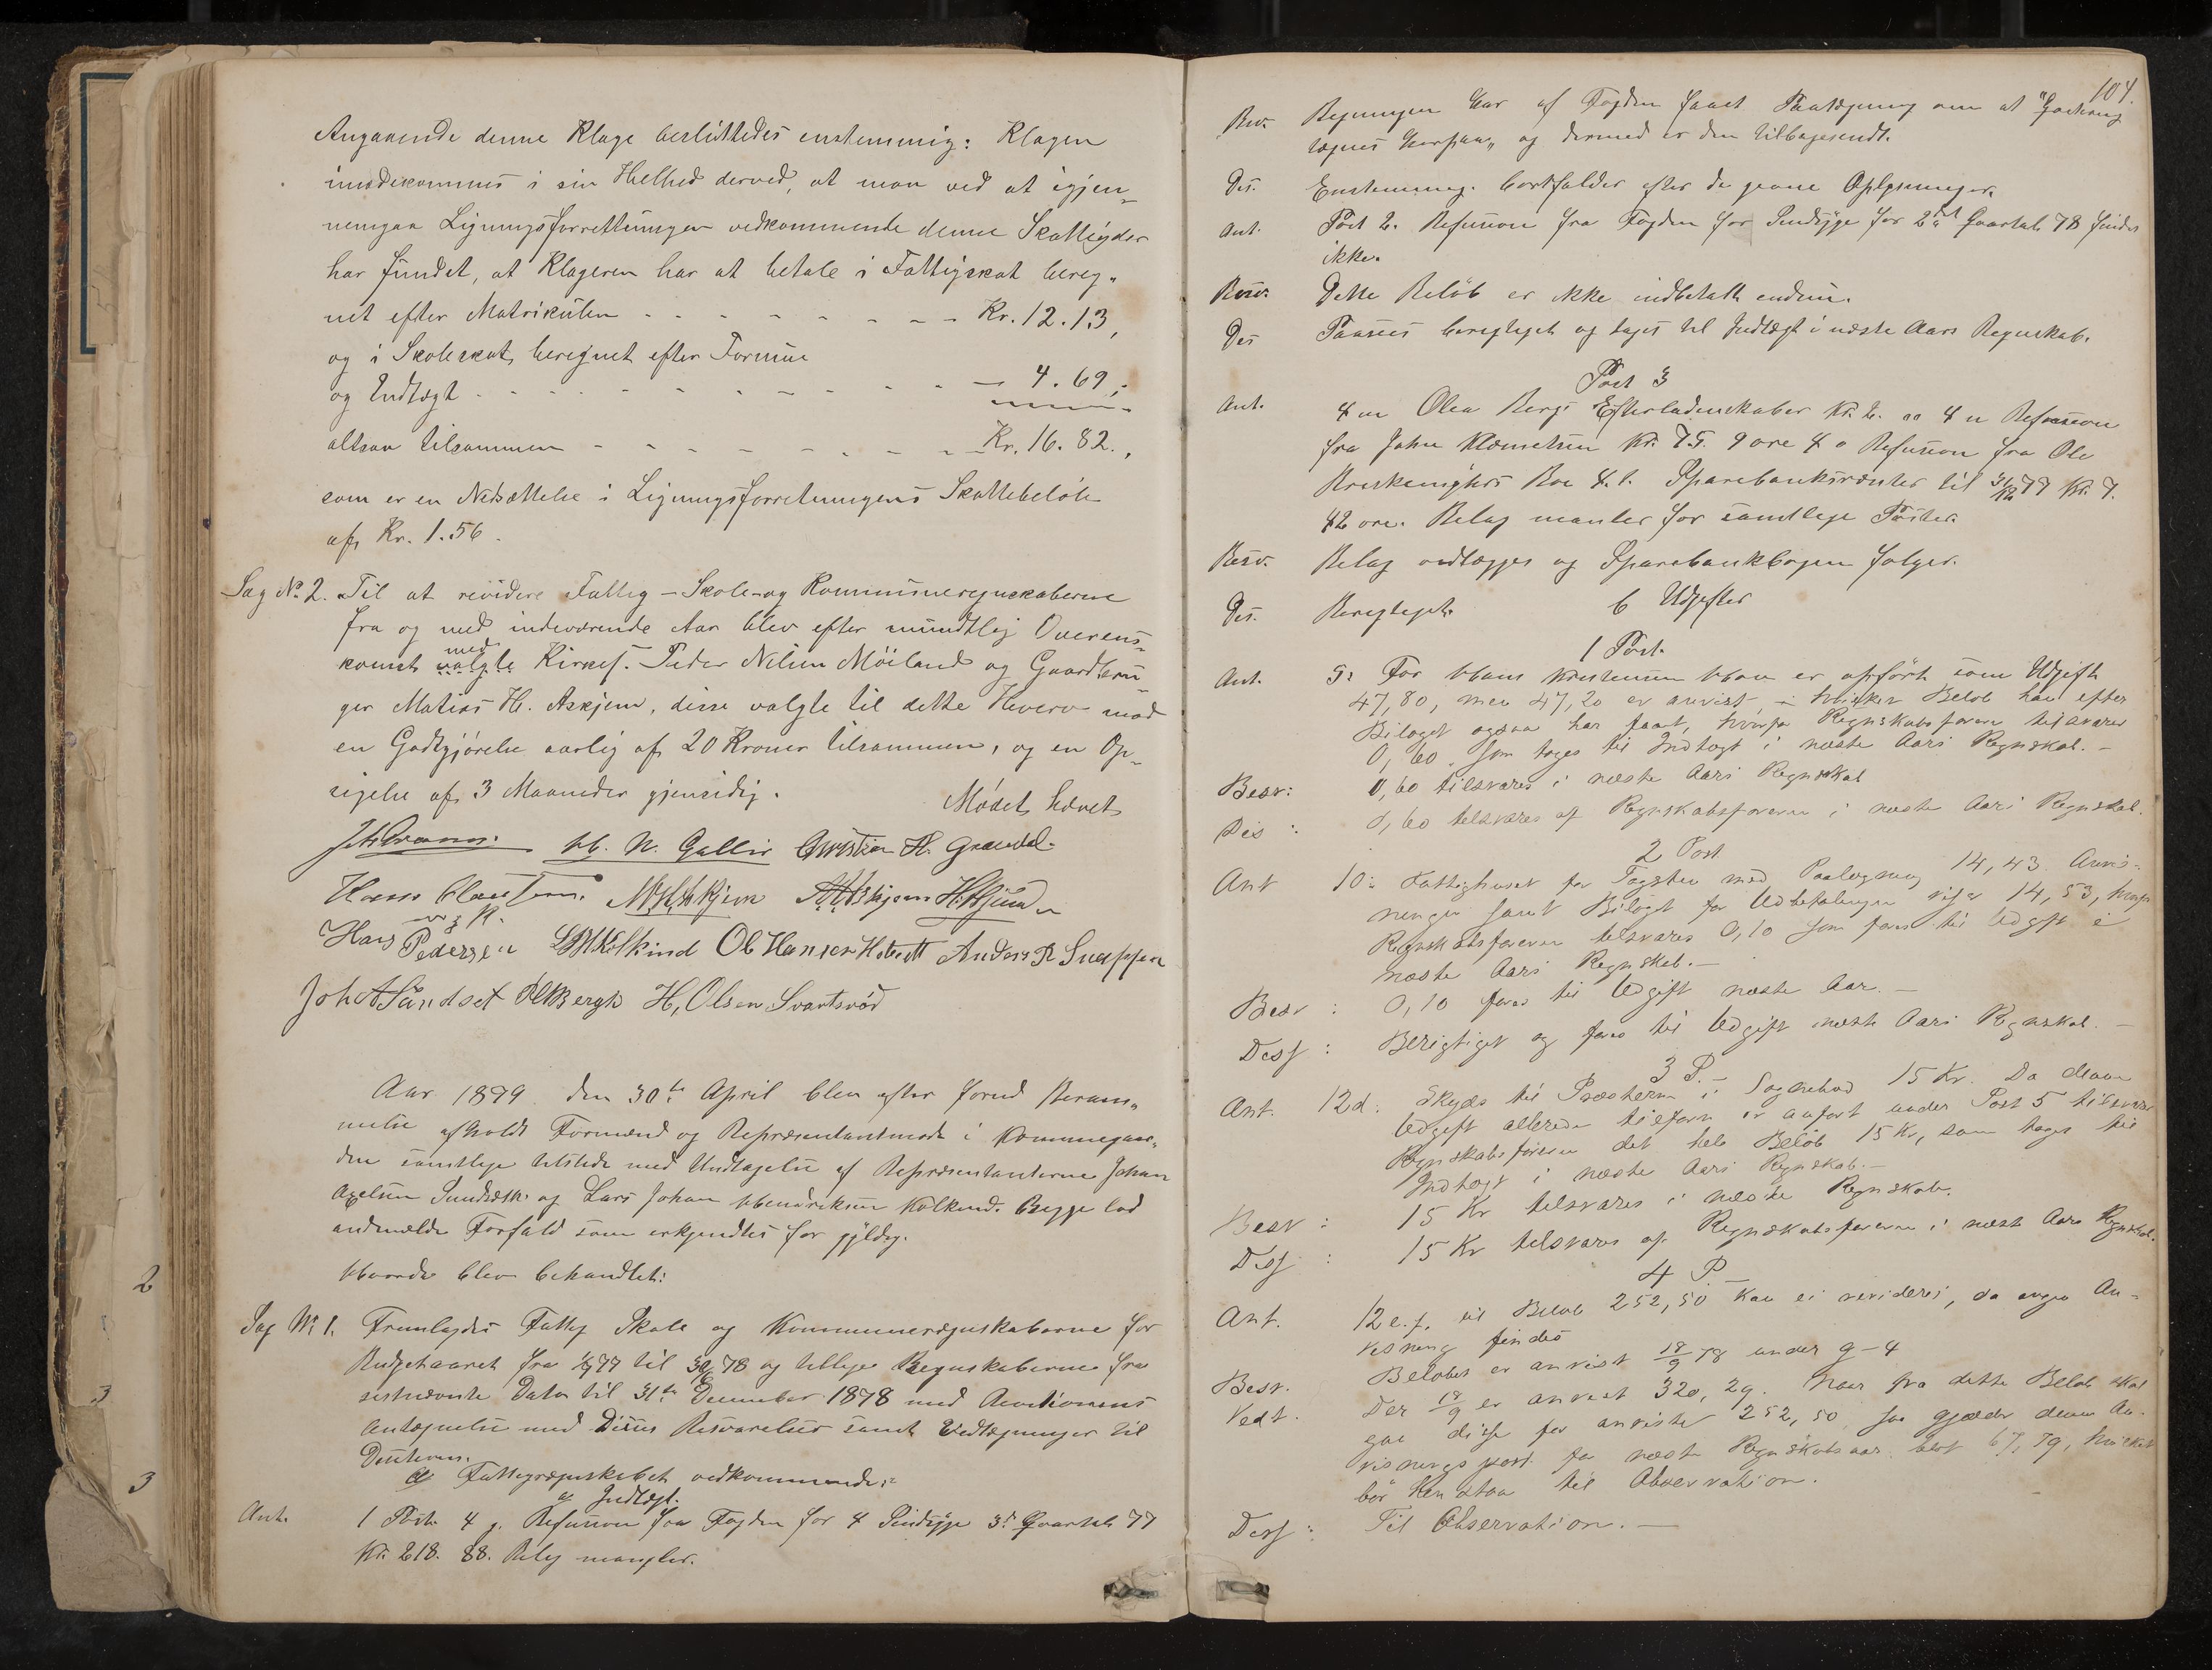 Angaaende denne Klage besluttedes enstemmig: Klagen
imødekommes i sin Helhed derved, at man ved at igjen-
nemgaa Ligningsforretningen vedkommende denne Skatteyder
har fundet, at Klageren har at betale i Fattigskat bereg-
net efter Matrikulen - - - - - - - - Kr. 12.13,
og i Skoleskat, beregnet efter Formue
og Indtægt - - - - - - - - - - 4.69;
altsaa tilsammen - - - - - - - Kr. 16.82.,
som er en Nedsættelse i Ligningsforretningens Skattebeløb
af Kr. 1.56.
Sag No. 2. Til at revidere Fattig- Skole- og Kommuneregnskaberne
fra og med indeværende Aar blev efter mundtlig Overens-
komst med valgte Kirkes. Peder Nilsen Möiland og Gaardbru-
ger Matias H. Askjem, disse valgte til dette Hverv mod
en Godtgjörelse aarlig af 20 Kroner tilsammen, og en Op-
sigelse af 3 Maaneder gjensidig.
Mødet hævet
N. Gallis Christian H. Grændal
Hans Clausen. Askjem
Hans Pedersen Kolkind Ol Hansen Anders R
Joh A Sandset Bergh H, Olsen Svartsröd
Aar 1879 den 30te April blev efter forud Beram-
melse afholdt Formænd og Repræsentantmøde i Kommunegaar-
den samtlige tilstede med Undtagelse af Repræsentanterne Johan
Axelsen Sandset og Lars Johan Hendriksen Kolkind. Begge lod
anmelde Forfald som erkjendtes for gyldig.
Hvorda blev behandlet:
Sag No. 1. Fremlagdes Fattig Skole og Kommuneregnskaberne for
Budgetaaret fra 1/7 77 til 30/6 78 og tillige Regnskaberne fra
sistnævnte Dato til 31te December 1878 med Revisionens
Antegnelse med Disses Besvarelser samt Vedtegninger til
Desition.
a Fattigregnskabet vedkommende:
a Indtægt.
Ant. 1 Post 4 g. Refusion fra Fogden for 4 Sindsyge 3d Qvartal 77
Kr. 218. 88. Belag mangler.
104.
Besv. Regningen har af Fogden faaet Paategning om at "Qvittering
tegnes herpaa" og dermed er den tilbagesendt.
Des. Enstemmig. bortfalder efter de givne Oplysninger.
Ant. Post 2. Refusion fra Fogden for Sindsyge for 2det Qvartal 78 findes
ikke.
Besv. Dette Beløb er ikke indbetalt endnu.
Des Ansees berigtiget og tages til Indtægt i næste Aars Regnskab.
Post 3
Ant. 4 m Olea Bergs Efterladenskaber Kr. 2. 4 n Refusion
fra Johan Klemetsen Kr. 75. 9 øre 4 o Refusion fra Ole
Bo 4. t. Sparebanksrenter til 31/12 77 Kr. 7.
42 øre. Belag mangler for samtlige Poster.
Besv. Belag vedlægges og Sparebankbogen følger.
Des. Berigtiget.
b Udgifter
1 Post.
Ant. 5: For Hans Kristensen er opfört som Udgift
47,80, men 47,20 er anvist, hvilket Beløb han efter
Bilaget ogsaa har faaet, hvorfor Regnskabsføreren tilsvarer
0,60 som tages til Indtægt i næste Aars Regnskab.-
Besv: 0,60 tilsvares i næste Aars Regnskab
Des: 0,60 tilsvares af Regnskabsføreren i næste Aars Regnskab.
2 Post
Ant 10: Fattighuset for med Paalægning 14,43 Anvis-
ningen samt Bilaget for Udbetalingen viser 14,53, hvorfor
Regnskabsføreren tilsvares 0,10 som føres til Udgift i
næste Aars Regnskab.-
Besv: 0,10 føres til Udgift næste Aar.-
Desf: Berigtiget og føres til Udgift næste Aars Regnskab.-
3 P.-
Ant. 12d: Skyds til Præsterne i Sognebud 15 Kr. Da denne
Udgift allerede tilforn er anført under Post 5 tilsvarer
Regnskabsføreren det hele Beløb 15 Kr, som tages til
Indtægt i næste Aars Regnskab.-
Besv: 15 Kr tilsvares i næste Regnskab.
Desf: 15 Kr tilsvares af Regnskabsføreren i næste Aars Regnskab.
4 P.-
Ant. 12 e.f. til Beløb 252,50 kan ei revideres, da ingen An-
visning findes
Besv. Beløbet er anvist 18/9 78 under 9-4
Vedt. Der 18/9 er anvist 320,29. Naar fra dette Beløb skal
gaa disse før anviste 252,50 saa gjælder denne An-
visningspost for næste Regnskabsaar blot 67,79, hvilket
bör henstaa til Observation.
Desf: Til Observation.-
2
3
3